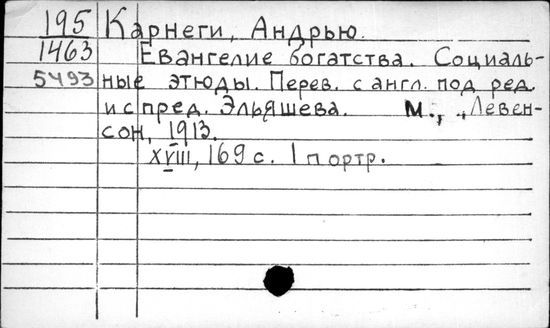 195 Карнеги, Андрью.
1463 Евангелие богатства. Социаль-
5493 ные этюды. Перев. с англ. под ред.
и с пред. Эльяшева. М., „Левен-
сон, 1913.
XVIII, 169 с. 1 портр.